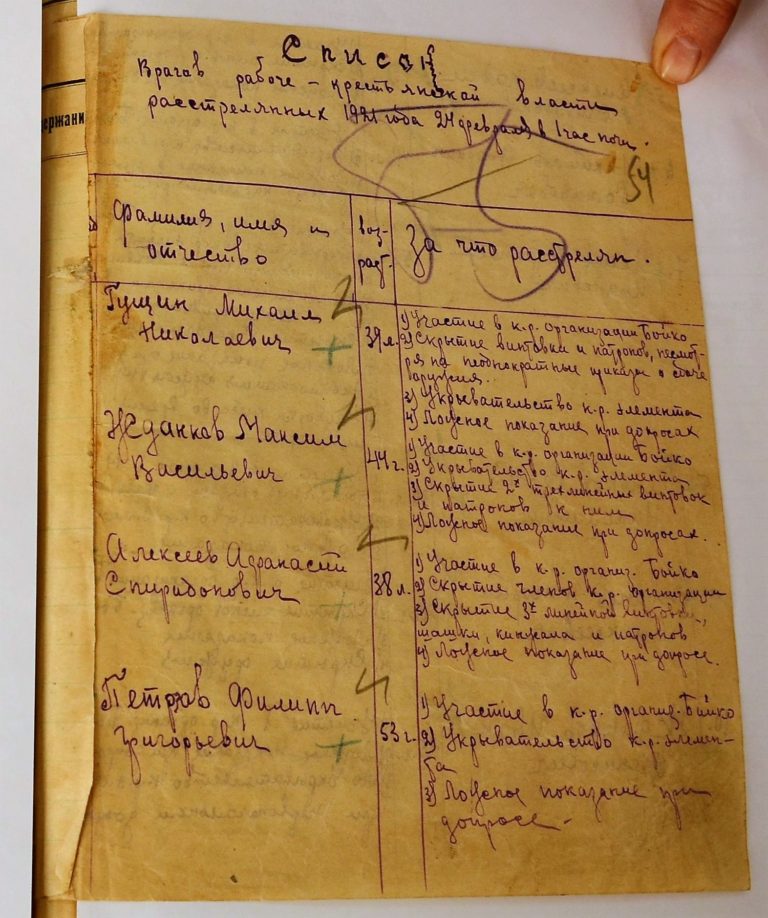 держани
Список
Врагов рабоче-крестьянской власти
расстрелянных 1921 года 24 февраля в 1 час ночи.
54
Фамилия, имя и отчество
воз-
раст.
За что расстрелян.
Гущин Михаил
Николаевич
39 л.
1) Участие в к.р. организации Бойко
2) Скрытие винтовки и патронов, несмот-
ря на неоднократные приказы о сдаче
оружия.
3) Укрывательство к.р. элемента
4) Ложное показание при допросах
Жданков Максим
Васильевич
44 г.
1) Участие в к.р. организации Бойко
2) Укрывательство к.р. элемента
3) Скрытие 2х трехлинейных винтовок
и патронов к ним
4) Ложное показание при допросах.
Алексеев Афанасий
Спиридонович
38 л.
1) Участие в к.р. организ. Бойко
2) Скрытие членов к.р. организации
3) Скрытие 3х линейной винтовки,
шашки, кинжала и патронов
4) Ложное показание при допросе.
Петров Филипп
Григорьевич
53 г.
1) Участие в к.р. организ. Бойко
2) Укрывательство к.р. элемен-
та
3) Ложное показание при
допросе-